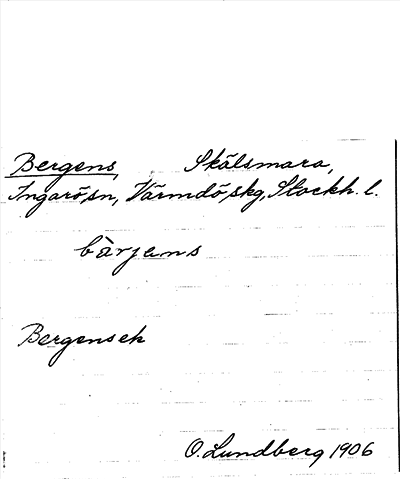 Bergens, Skälsmara,
Ingarö sn, Värmdö skg, Stockh. l.
bà̀rjans
Bergens ek
O. Lundberg 1906